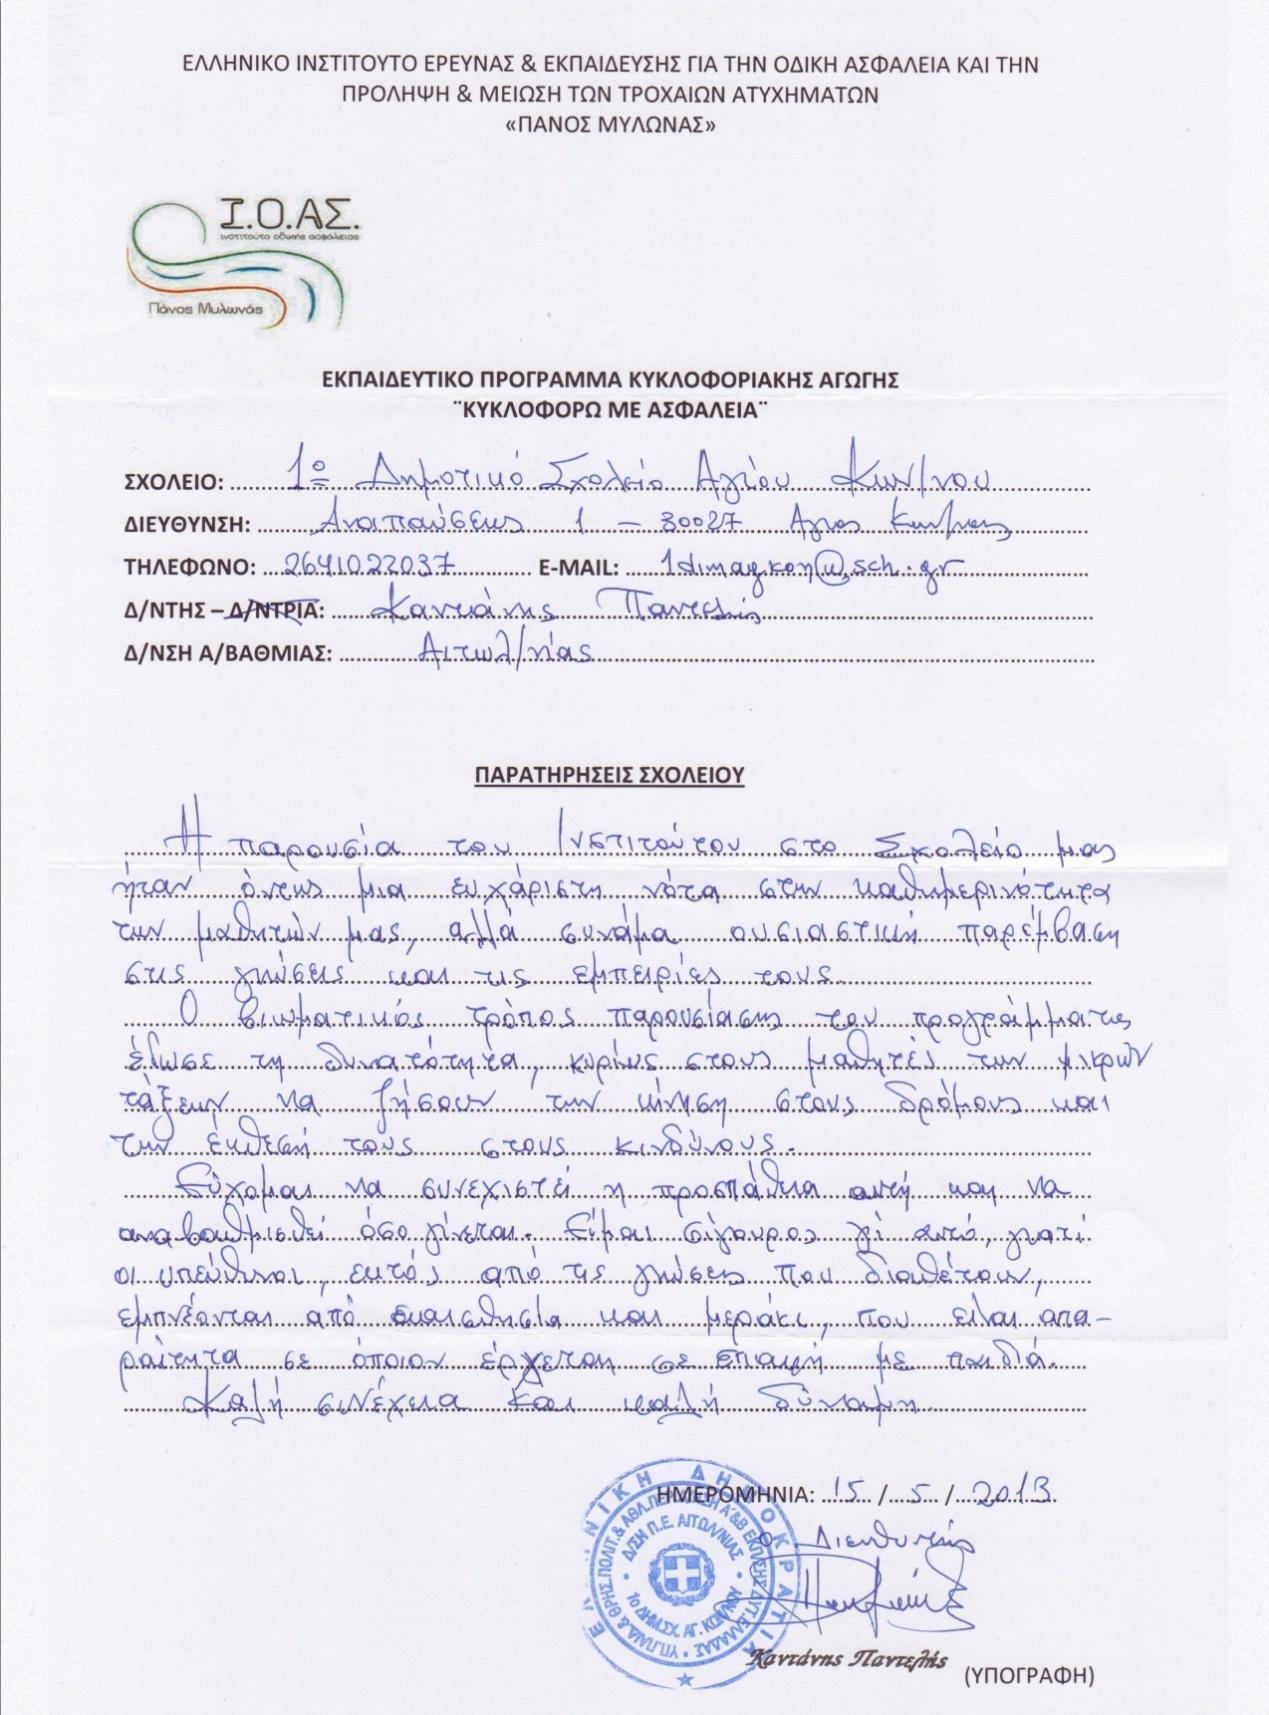 ΕΛΛΗΝΙΚΟ ΙΝΣΤΙΤΟΥΤΟ ΕΡΕΥΝΑΣ & ΕΚΠΑΙΔΕΥΣΗΣ ΓΙΑ ΤΗΝ ΟΔΙΚΗ ΑΣΦΑΛΕΙΑ ΚΑΙ ΤΗΝ
ΠΡΟΛΗΨΗ & ΜΕΙΩΣΗ ΤΩΝ ΤΡΟΧΑΙΩΝ ΑΤΥΧΗΜΑΤΩΝ
«ΠΑΝΟΣ ΜΥΛΩΝΑΣ»
Ι.Ο.ΑΣ.
ινστιτούτο οδικής ασφάλειας
Πάνος Μυλωνάς
ΕΚΠΑΙΔΕΥΤΙΚΟ ΠΡΟΓΡΑΜΜΑ ΚΥΚΛΟΦΟΡΙΑΚΗΣ ΑΓΩΓΗΣ
¨ΚΥΚΛΟΦΟΡΩ ΜΕ ΑΣΦΑΛΕΙΑ¨
ΣΧΟΛΕΙΟ: 1ο Δημοτικό Σχολείο Αγίου Κων/νου
ΔΙΕΥΘΥΝΣΗ: Αναπαύσεως 1 – 30027 Άγιος Κων/νος
ΤΗΛΕΦΩΝΟ: 2641022037 E-MAIL: 1dimagkon@sch.gr
Δ/ΝΤΗΣ – Δ/ΝΤΡΙΑ: Καντάνης Παντελής
Δ/ΝΣΗ Α/ΒΑΘΜΙΑΣ: Αιτωλ/νίας
ΠΑΡΑΤΗΡΗΣΕΙΣ ΣΧΟΛΕΙΟΥ
Η παρουσία του Ινστιτούτου στο Σχολείο μας
ήταν όντως μια ευχάριστη νότα στην καθημερινότητα
των μαθητών μας, αλλά συνάμα ουσιαστική παρέμβαση
στις γνώσεις και τις εμπειρίες τους.
Ο βιωματικός τρόπος παρουσίασης του προγράμματος
έδωσε τη δυνατότητα, κυρίως στους μαθητές των μικρών
τάξεων να ζήσουν την κίνηση στους δρόμους και
την έκθεσή τους στους κινδύνους.
Εύχομαι να συνεχιστεί η προσπάθεια αυτή και να
αναβαθμισθεί όσο γίνεται. Είμαι σίγουρος γι αυτό, γιατί
οι υπεύθυνοι, εκτός από τις γνώσεις που διαθέτουν,
εμπνέονται από ευαισθησία και μεράκι, που είναι απα-
ραίτητα σε όποιον έρχεται σε επαφή με παιδιά.
Καλή συνέχεια και καλή δύναμη
ΗΜΕΡΟΜΗΝΙΑ: 15 / 5 / 2013
Ο Διευθυντής
ΕΛΛΗΝΙΚΗ ΔΗΜΟΚΡΑΤΙΑ
Δ/ΣΗ Π.Ε. ΑΙΤΩΛ/ΝΙΑΣ
1ο ΔΗΜ.ΣΧ. ΑΓ. ΚΩΝ/ΝΟΥ
Καντάνης Παντελής
(ΥΠΟΓΡΑΦΗ)